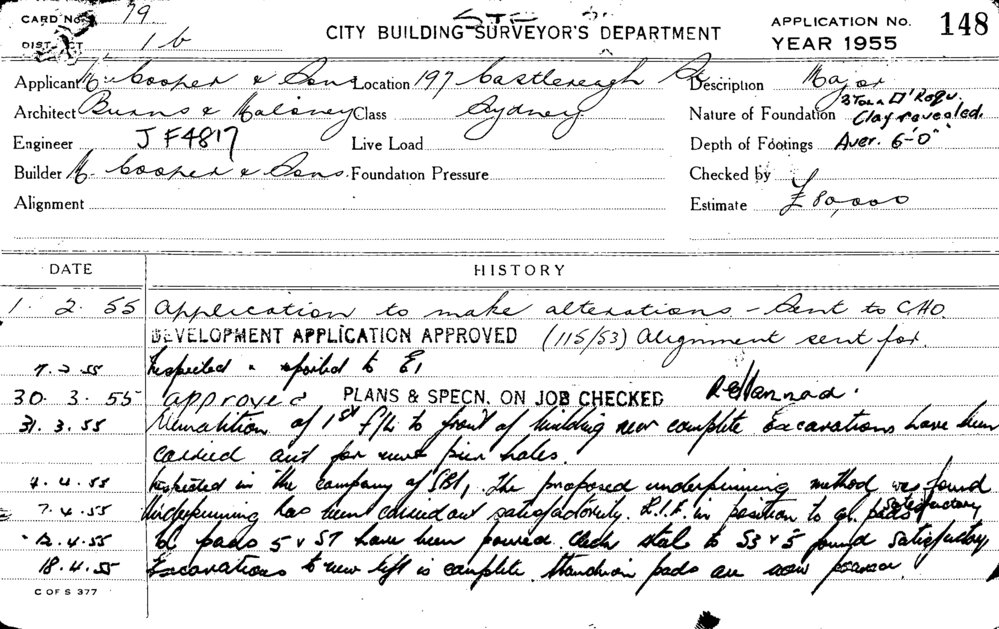 CARD No. 79
DISTRICT 1b
CITY BUILDING SURVEYOR'S DEPARTMENT
APPLICATION No. 148
YEAR 1955
Applicant M. Cooper & Sons Location 197 Castlereagh St. Description Major
Architect Burns & Maloney Class Sydney Nature of Foundation 3 Ton a □' Requ. Clay revealed.
Engineer J F4817 Live Load Depth of Footings Aver. 6'-0"
Builder M. Cooper & Sons. Foundation Pressure Checked by
Alignment Estimate £80,000
DATE HISTORY
1. 2. 55 Application to make alterations - Sent to CHO
DEVELOPMENT APPLICATION APPROVED (115/53) Alignment sent for.
7.2.55 Inspected & reported to E1
30. 3. 55 approved PLANS & SPECN. ON JOB CHECKED
31. 3. 55 Demolition of 1st f/lr to front of building now complete Excavations have been
carried out for new pier holes.
4. 4. 55 Inspected in the company of SBI, The proposed underpinning method was found satisfactory
7. 4. 55 Underpinning has been carried out satisfactorily. R.I.F. in position to pads
12.4.55 pads 5 & S7 have been poured. Check steel to S3 & 5 found satisfactory
18.4.55 Excavations to new lift is complete. Stanchion pads are now
C OF S 377